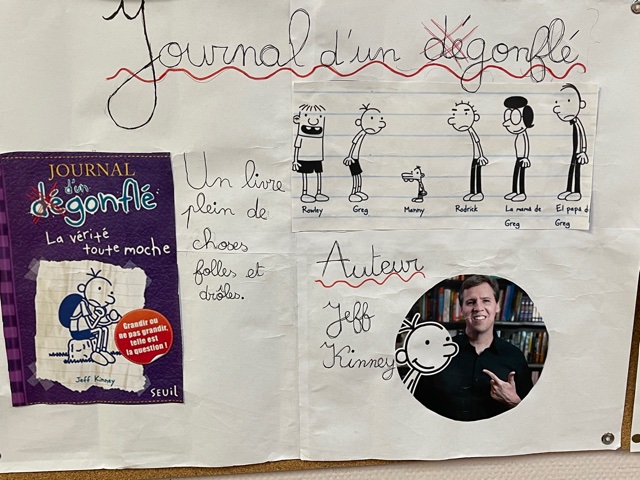 Journal d'un dégonflé
Rowley Greg Manny Rodrick La mamá de Greg El papa d Greg
JOURNAL
d'un
dégonflé
La vérité
toute moche
Grandir ou
ne pas grandir,
telle est
la question !
Jeff Kinney
SEUIL
Un livre
plein de
choses
folles et
drôles.
Auteur
Jeff
Kinney